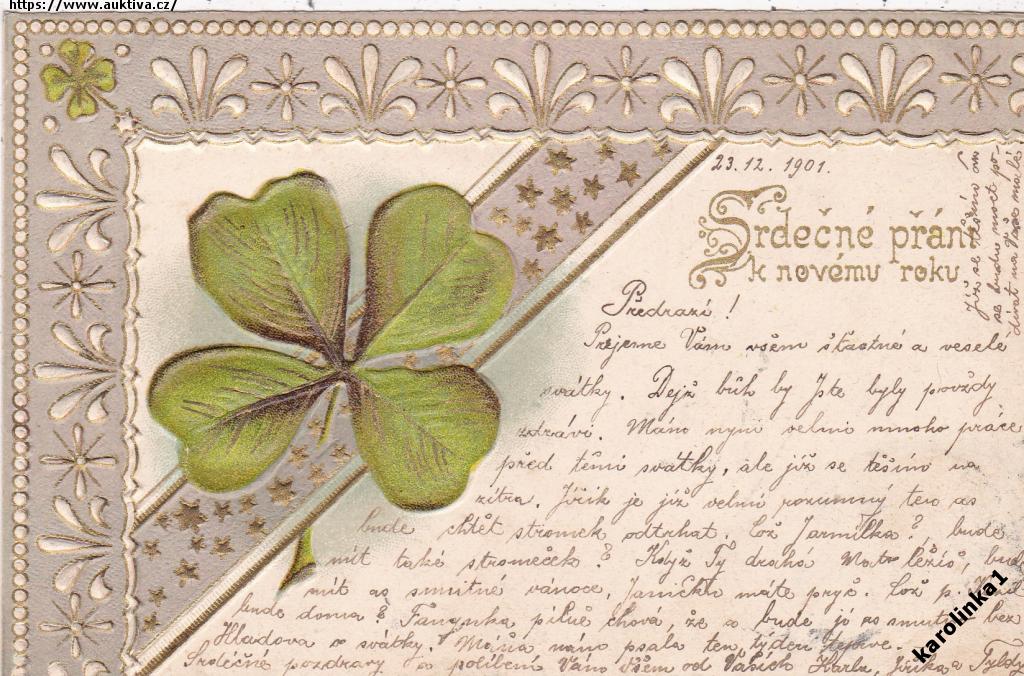 https://www.auktiva.cz/
23.12.1901.
Srdečné přání
k novému roku.
Již se těším
se budu moct po-
dívat na
Předrazí!
Přejeme Vám všem šťastné a veselé
svátky. Dejž bůh by Jste byly povždy
zdrávi. Máme nyní velmi mnoho práce
před těmi svátky, ale již se těšíme na
zítra. Jiřík je již velmi rozumný ten as
bude chtět stromek odtrhat. Což Jarmilka? bude
mít také stromeček? Když Ty drahá ležíš, bud
mít as smutné vánoce, máte pryč. Což p.
bude doma? Fanynka pilně chová, že a bude jí as smut bez
Hladova o svátky. Máňa nám psala ten týden teprve.
Srdečné pozdravy a políbení Vám Všem od Vašich Karla, Jiříka a Tyldy
karolinka1